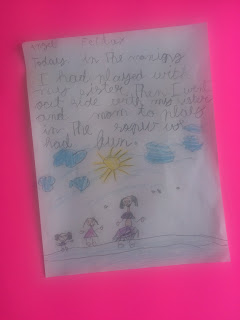 Today in the morning
I had played with
my sister. Then I went
out side with my sister
and mom to play
in the
had fun.